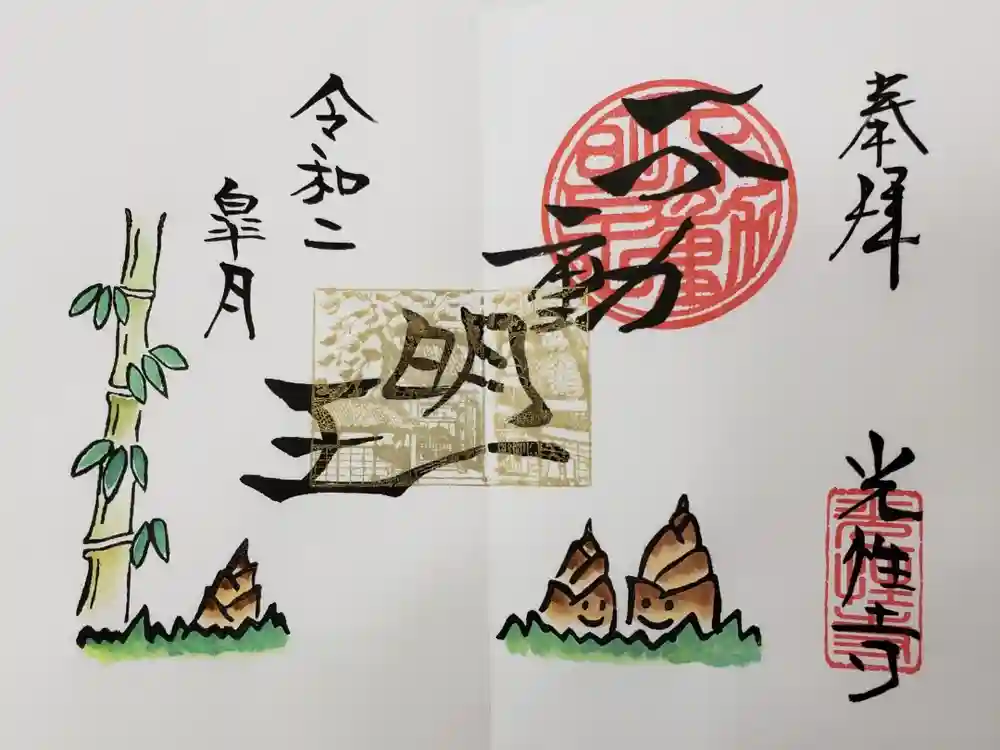 奉拝
不動
明王
光性寺
令和二
皐月